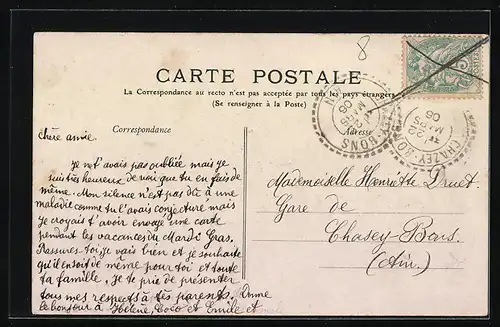 8
CARTE POSTALE
La Correspondance au recto n'est pas acceptée par tous les pays étrangers
(Se renseigner à la Poste)
Correspondance
Adresse
Chère amie.
Je ne t'avais pas oubliée mais je
suis très heureux de voir que tu en fais de
même. Mon silence n'est pas dû à une
maladie comme tu l'avais conjecturé mais
je croyais t'avoir envoyé une carte
pendant les vacances du Mardi Gras.
Rassures-toi je vais bien et je souhaite
qu'il en soit de même pour toi et toute
ta famille. Je te prie de présenter
tous mes respects à tes parents. Donne
le bonjour à Hélène, Coco et Emile et
Mademoiselle Henriette Druet
Gare de
Chazey-Bons
(Ain)